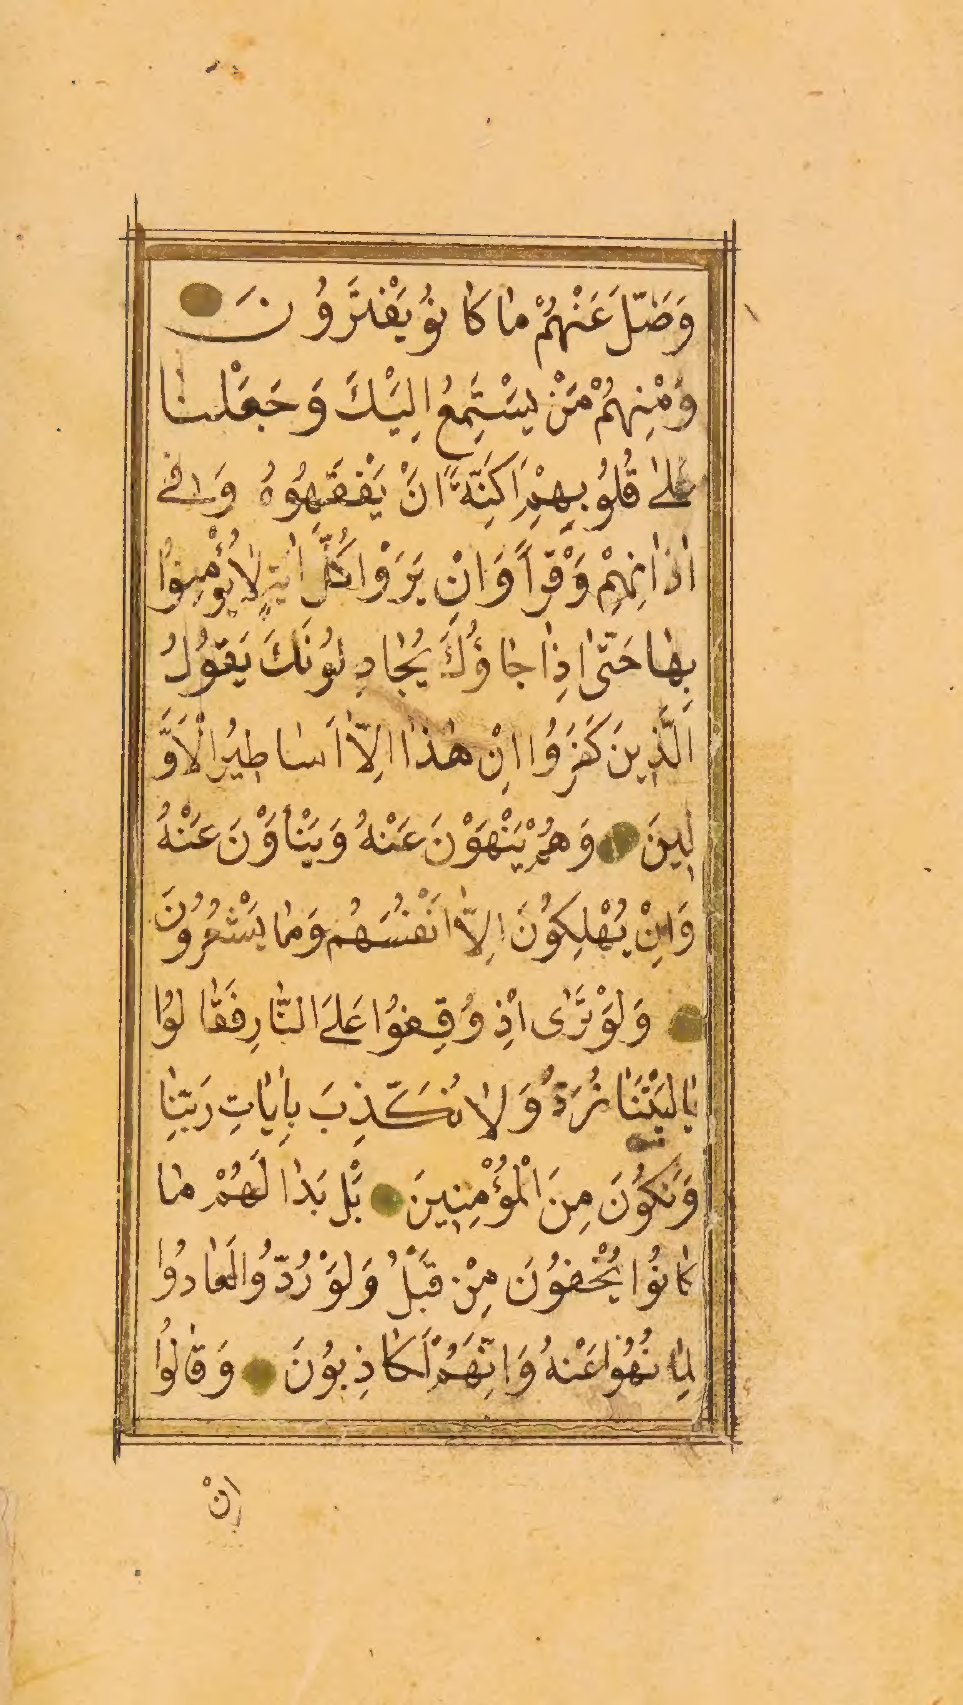 وَضَلَّ عَنْهُمْ مٰا كٰانوُ يَفْتَرَوُنَ
وَمْنِهُمْ مَنْ يَسْتَمِعُ اِلَيْكَ وَجَعَلْنٰا
عَلىٰ قُلوُبِهِمْ اَكِنَّةً اَنْ يَفْقَهوُهُ وَ فى
اٰذٰانِهِمْ وَقْراً وَاِنْ يَرَوْا كُلَّ اٰيَةٍ لاٰ يُؤْمِنوُا
بِهٰا حَتّىٰ اِذٰا جٰاؤُكَ يُجٰادِلوُنَكَ يَقوُلُ
اَلَّذينَ كَفَروُا اِنْ هٰذٰا اِلاّٰ اَسٰاطيرُ الْاَوَّ
لينَ وَهُمْ يَنْهَوْنَ عَنْهُ وَيَنْأَوْنَ عَنْهُ
وَاِنْ يُهْلِكوُنَ اِلاّٰ اَنْفُسَهُمْ وَمٰا يَشْعُروُنَ
وَلَوْ تَرىٰ اِذْ وُقِفوُا عَلَى النّٰارِ فَقٰالوُا
يٰا لَيْتَنٰا نُرَدُّ وَلاٰ نُكَذِّبَ بِاٰيٰاتِ رَبِّنٰا
وَنَكوُنَ مِنَ الْمُؤْمِنينَ بَلْ بَدٰا لَهُمْ مٰا
كٰانوُا يُخْفوُنَ مِنْ قَبْلُ وَلَوْ رُدّوُا لَعٰادوُا
لِمٰا نُهوُا عَنْهُ وَاِنَّهُمْ لَكٰاذِبوُنَ وَقٰالوُا
اِنْ